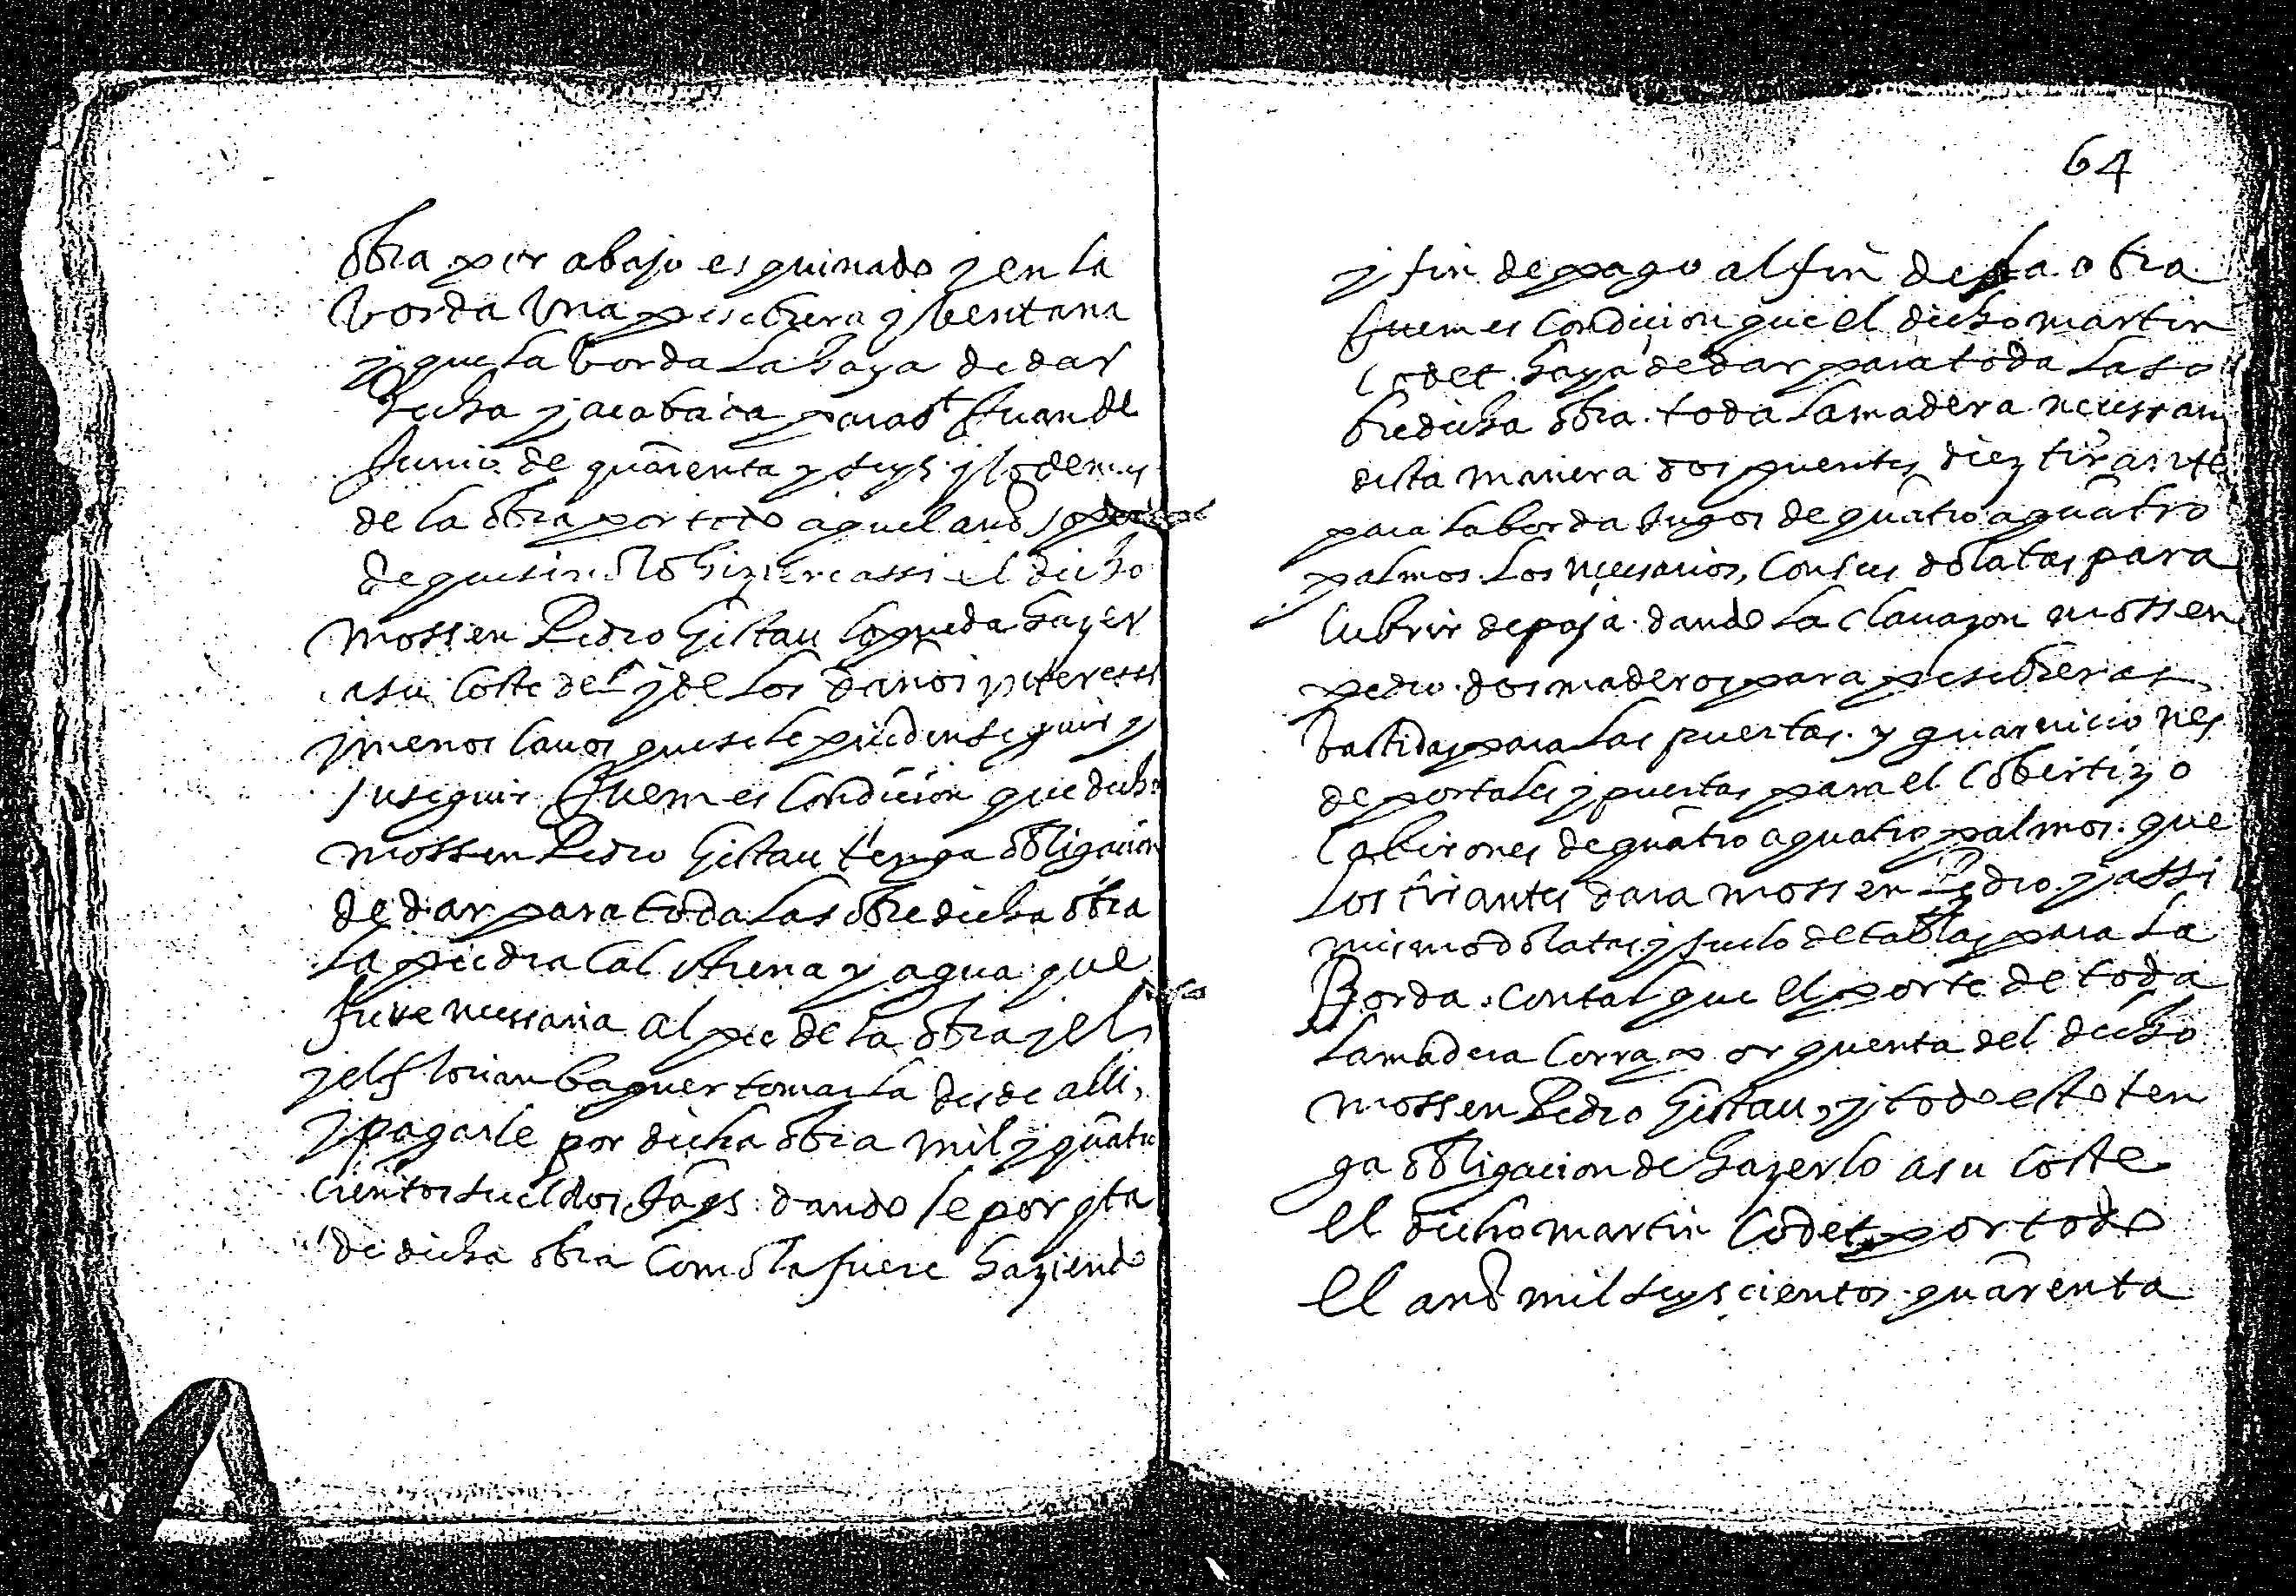 obra por abajo esquinado y en la
borda una pesebrera y bentana
y que la borda la haya de dar
hecha y acabada para st Juan de
Junio de quarenta y seys y lo demas
de la obra por todo aquel año
de que sino lo hiziere assi el dicho
mossen Pedro Gistau lo pueda hazer
a su coste del y de los daños interesses
y menoscauos que se le pueden seguir y
suseguir Ittem es Condicion que dicho
mossen Pedro Gistau tenga obligacion
de dar para toda la sobredicha obra
la piedra Cal Arena y agua que
fuere necessaria al pie de la obra y el
y el florian baquer tomarla desde alli,
y pagarle por dicha obra mil y quatro
cientos sueldos Jaqs. dandole por qta
de dicha obra Como la fuere haziendo
64
y fin de pago al fin de la obra
Ittem es Condicion que el dicho martin
Codet haya de dar para toda la so
bredicha obra toda la madera necessaria
desta manera dos puentes diez tirantes
para la borda de quatro a quatro
palmos los necesarios, con sus dolatas para
Cubrir de paja dando la Clauazon mossen
pedro dos maderos para pesebreras
bastidas para las puertas y guarniciones
de portales y puertas para el Cobertizo
Cabirones de quatro a quatro palmos que
los tirantes dara mossen Pedro y assi
mismo dolatas y suelo de tablas para la
Borda con tal que el porte de toda
la madera Corra por quenta del dicho
mossen Pedro Gistau, y todo esto ten
ga obligacion de hazerlo a su coste
el dicho martin Codet por todo
el año mil seyscientos quarenta